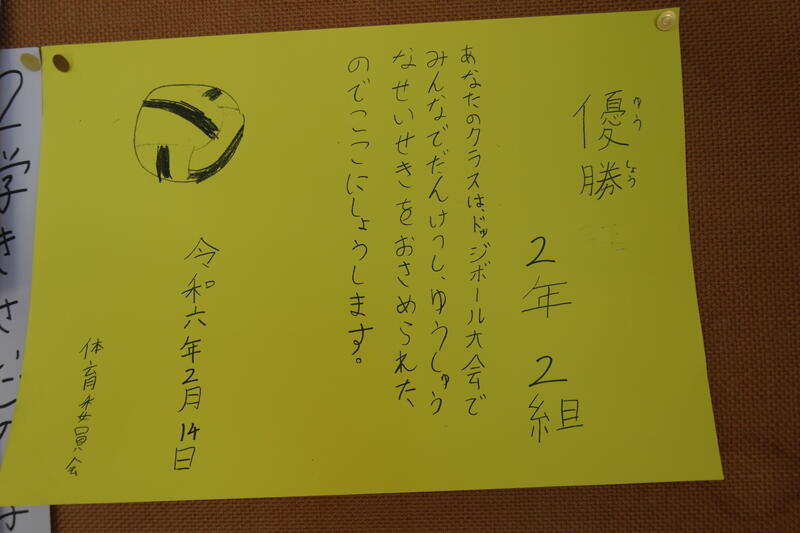 優勝
ゆうしょう
2年 2組
あなたのクラスは、ドッジボール大会で
みんなでだんけつし、ゆうしゅう
なせいせきをおさめられた、
のでここにしょうします。
令和六年2月14日
体育委員会